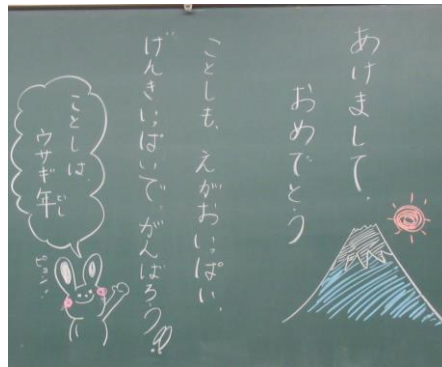 あけまして、
おめでとう
ことしも、えがおいっぱい、
げんきいっぱいで、がんばろう!!
ことしは、
ウサギ年
どし
ピョン!